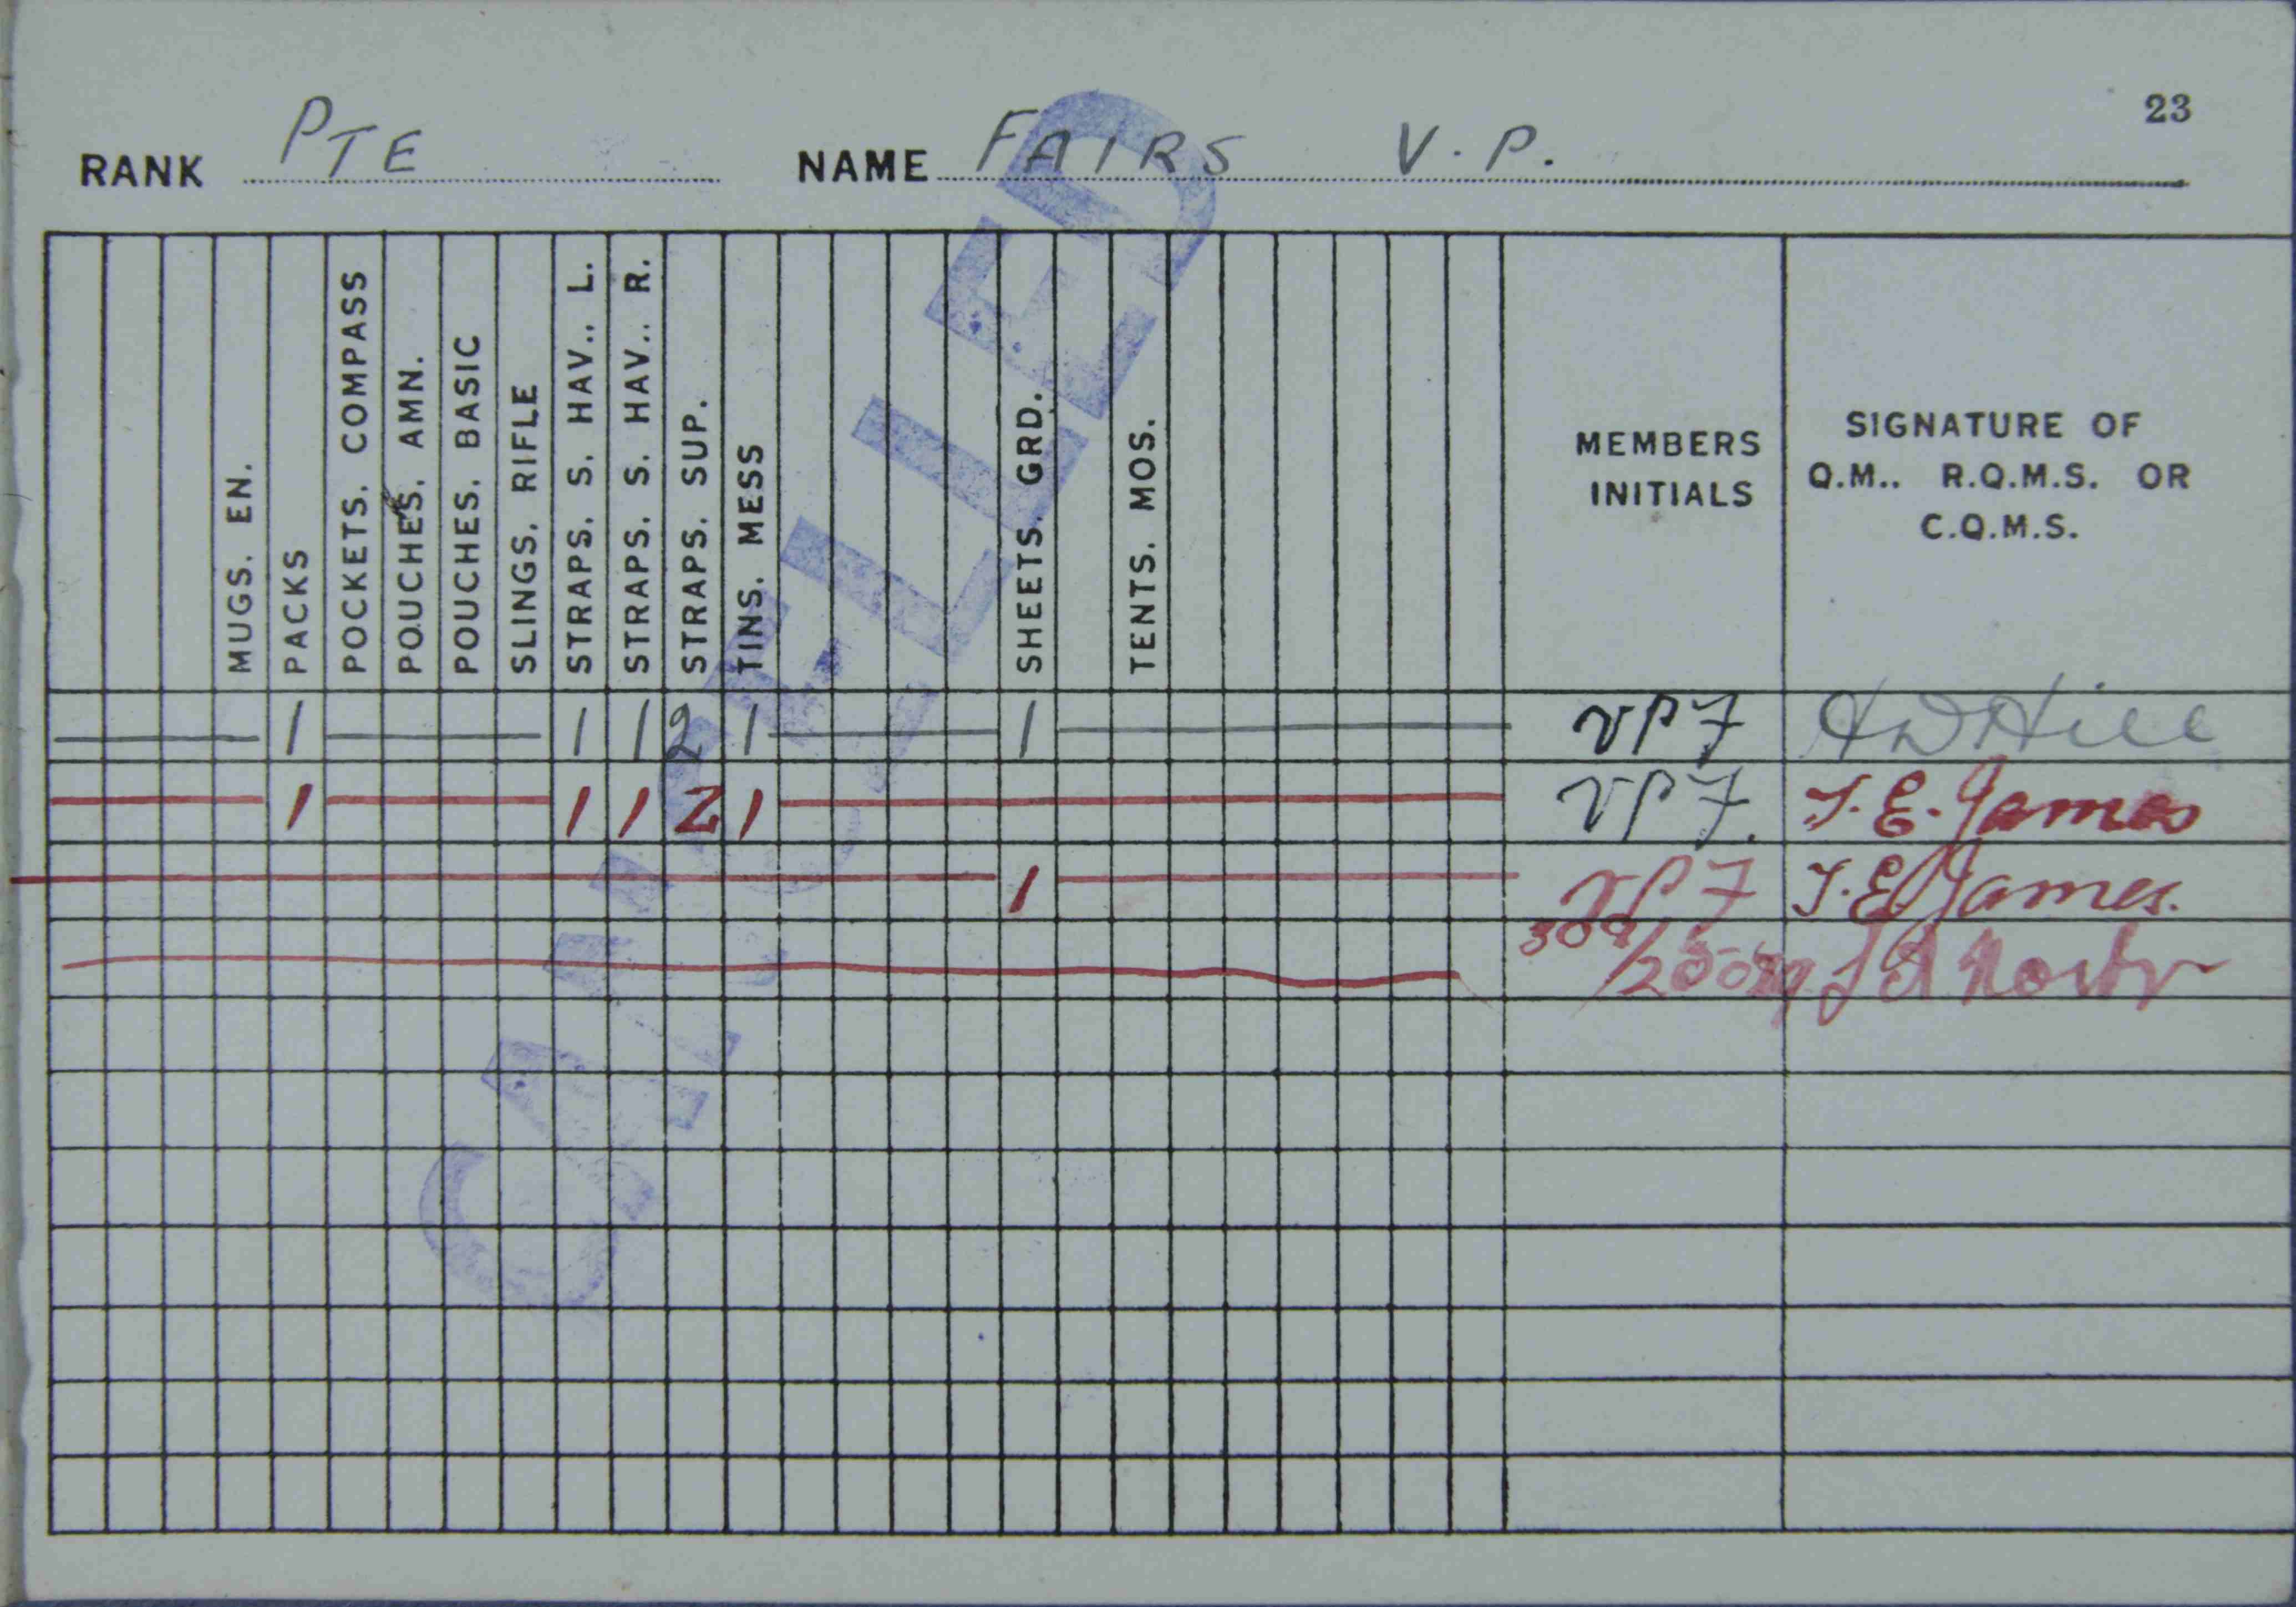 23
RANK PTE NAME FAIRS V.P.
MUGS. EN.
PACKS
POCKETS. COMPASS
POUCHES. AMN.
POUCHES. BASIC
SLINGS. RIFLE
STRAPS. S. HAV.. L.
STRAPS. S. HAV.. R.
STRAPS. SUP.
TINS. MESS
SHEETS. GRD.
TENTS. MOS.
MEMBERS
INITIALS
SIGNATURE OF
Q.M.. R.Q.M.S. OR
C.Q.M.S.
CANCELLED
1 1 1 2 1 1 VPF HDHill
1 1 1 2 1 VPF. T.E. James
1 VPF T.E James.